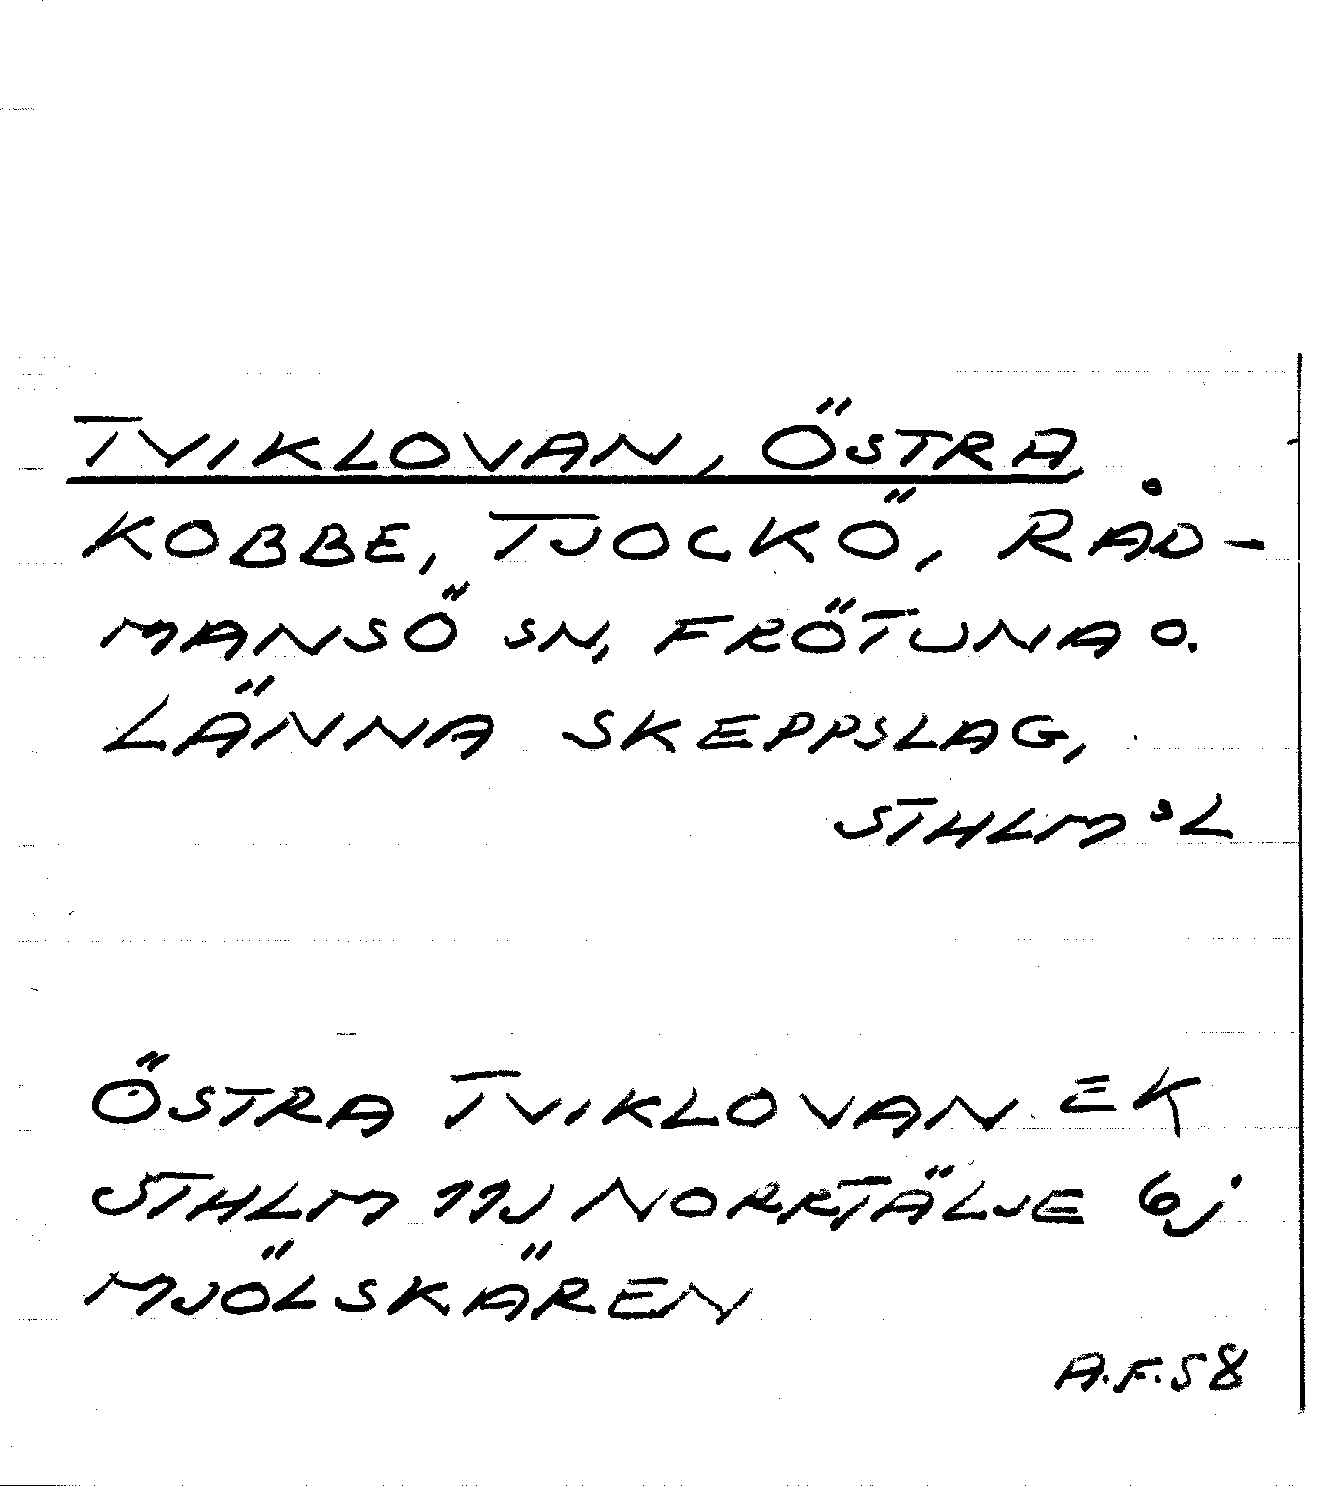 TVIKLOVAN, ÖSTRA,
KOBBE, TJOCKÖ, RÅD-
MANSÖ SN, FRÖTUNA O.
LÄNNA SKEPPSLAG,
STHLM S L
ÖSTRA TVIKLOVAN EK
STHLM 11J NORRTÄLJE 6j
MJÖLSKÄREN
A.F.58